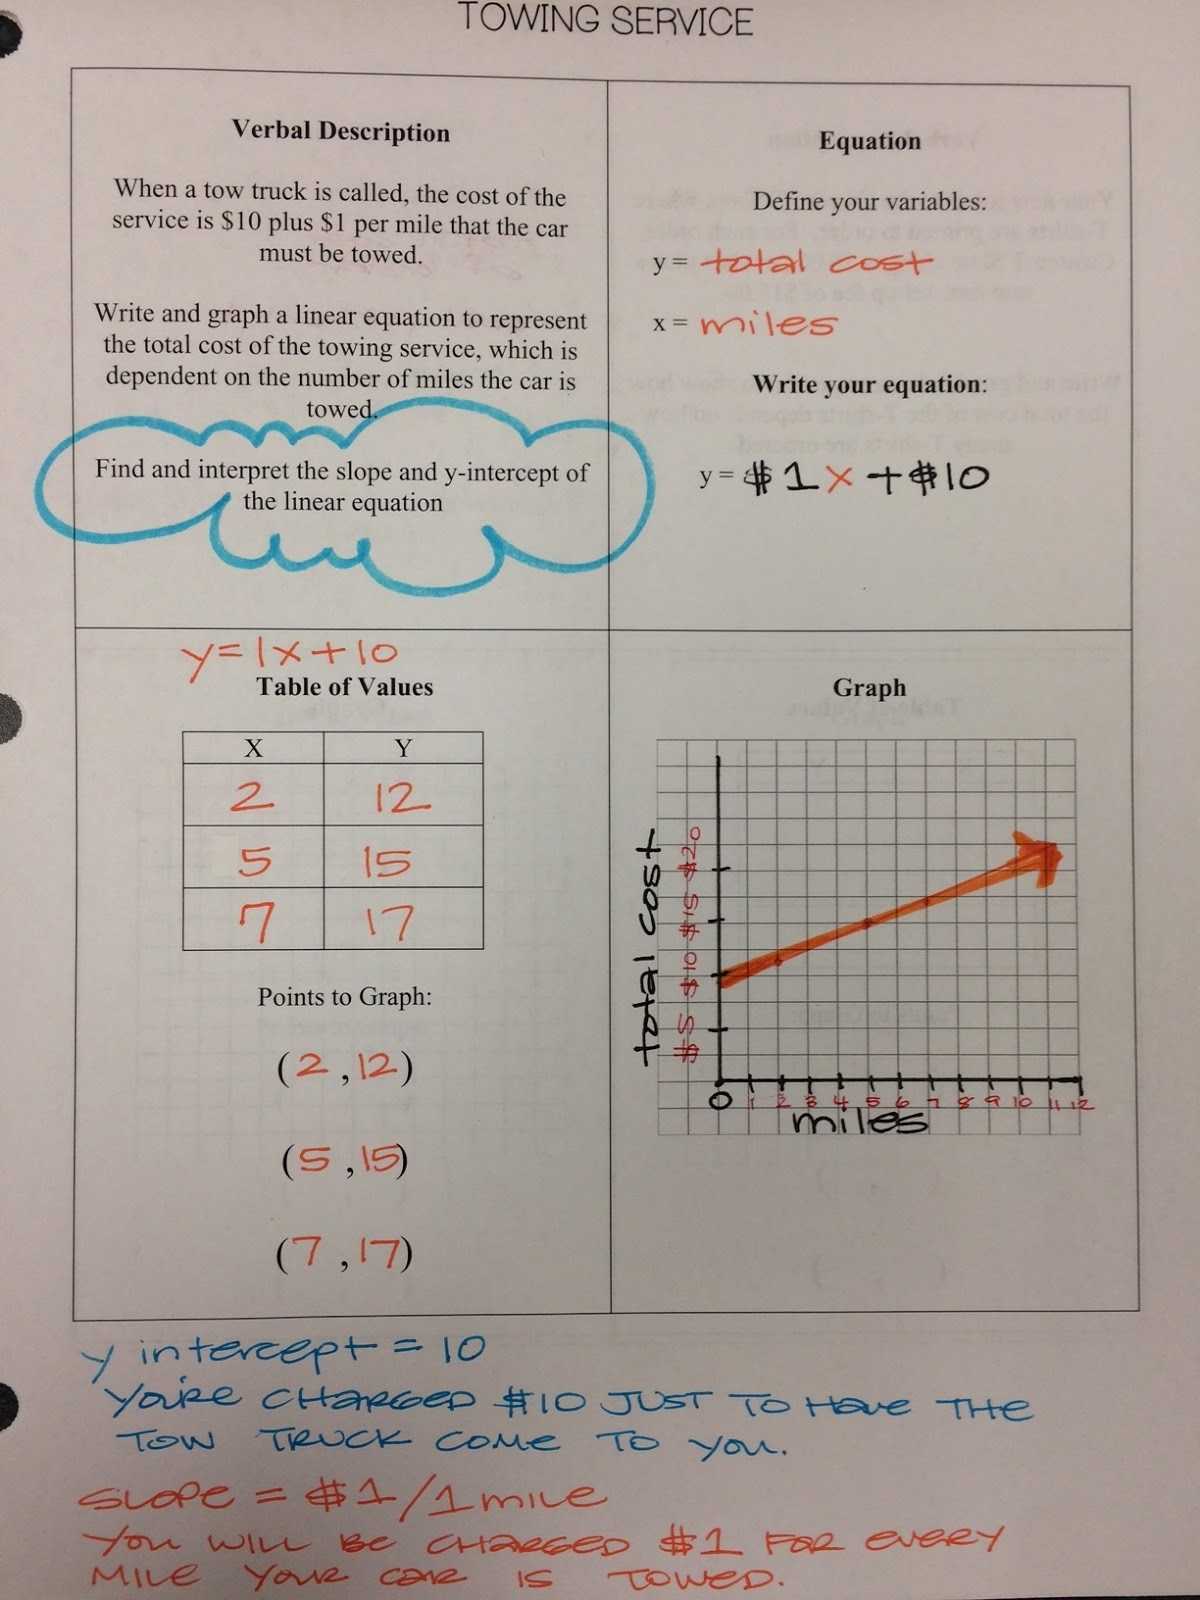 TOWING SERVICE
Verbal Description
When a tow truck is called, the cost of the
service is $10 plus $1 per mile that the car
must be towed.
Write and graph a linear equation to represent
the total cost of the towing service, which is
dependent on the number of miles the car is
towed.
Find and interpret the slope and y-intercept of
the linear equation
Equation
Define your variables:
y = total cost
x = miles
Write your equation:
y = $1x + $10
y=1x+10
Table of Values
X Y
2 12
5 15
7 17
Points to Graph:
(2,12)
(5,15)
(7,17)
Graph
total cost
$5 $10 $15 $20
0 1 2 3 4 5 6 7 8 9 10 11 12
miles
y intercept = 10
You're CHARGED $10 JUST TO HAVE THE
TOW TRUCK COME TO YOU.
SLOPE = $1/1 MILE
YOU WILL BE CHARGED $1 FOR EVERY
MILE YOUR CAR IS TOWED.